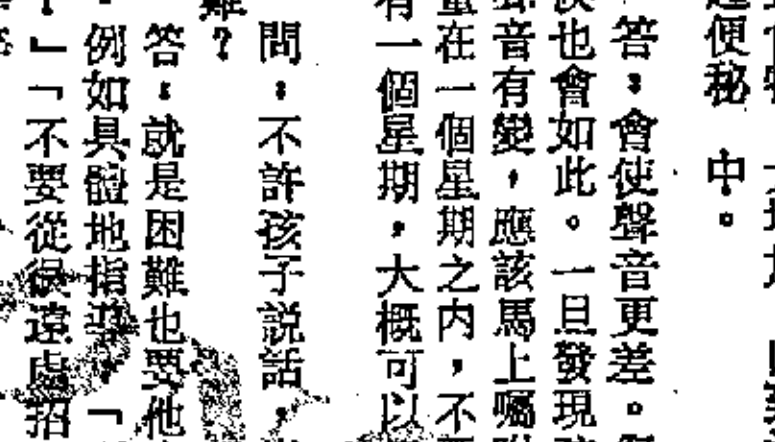 便秘　中。
答：會使聲音更差。
決也會如此。一旦發現
音有變，應該馬上囑
在一個星期之内，不
有一個星期，大概可以
問：不許孩子說話，
難？
答：就是困難也要他
例如具體地指導，「
」「不要從很遠處招